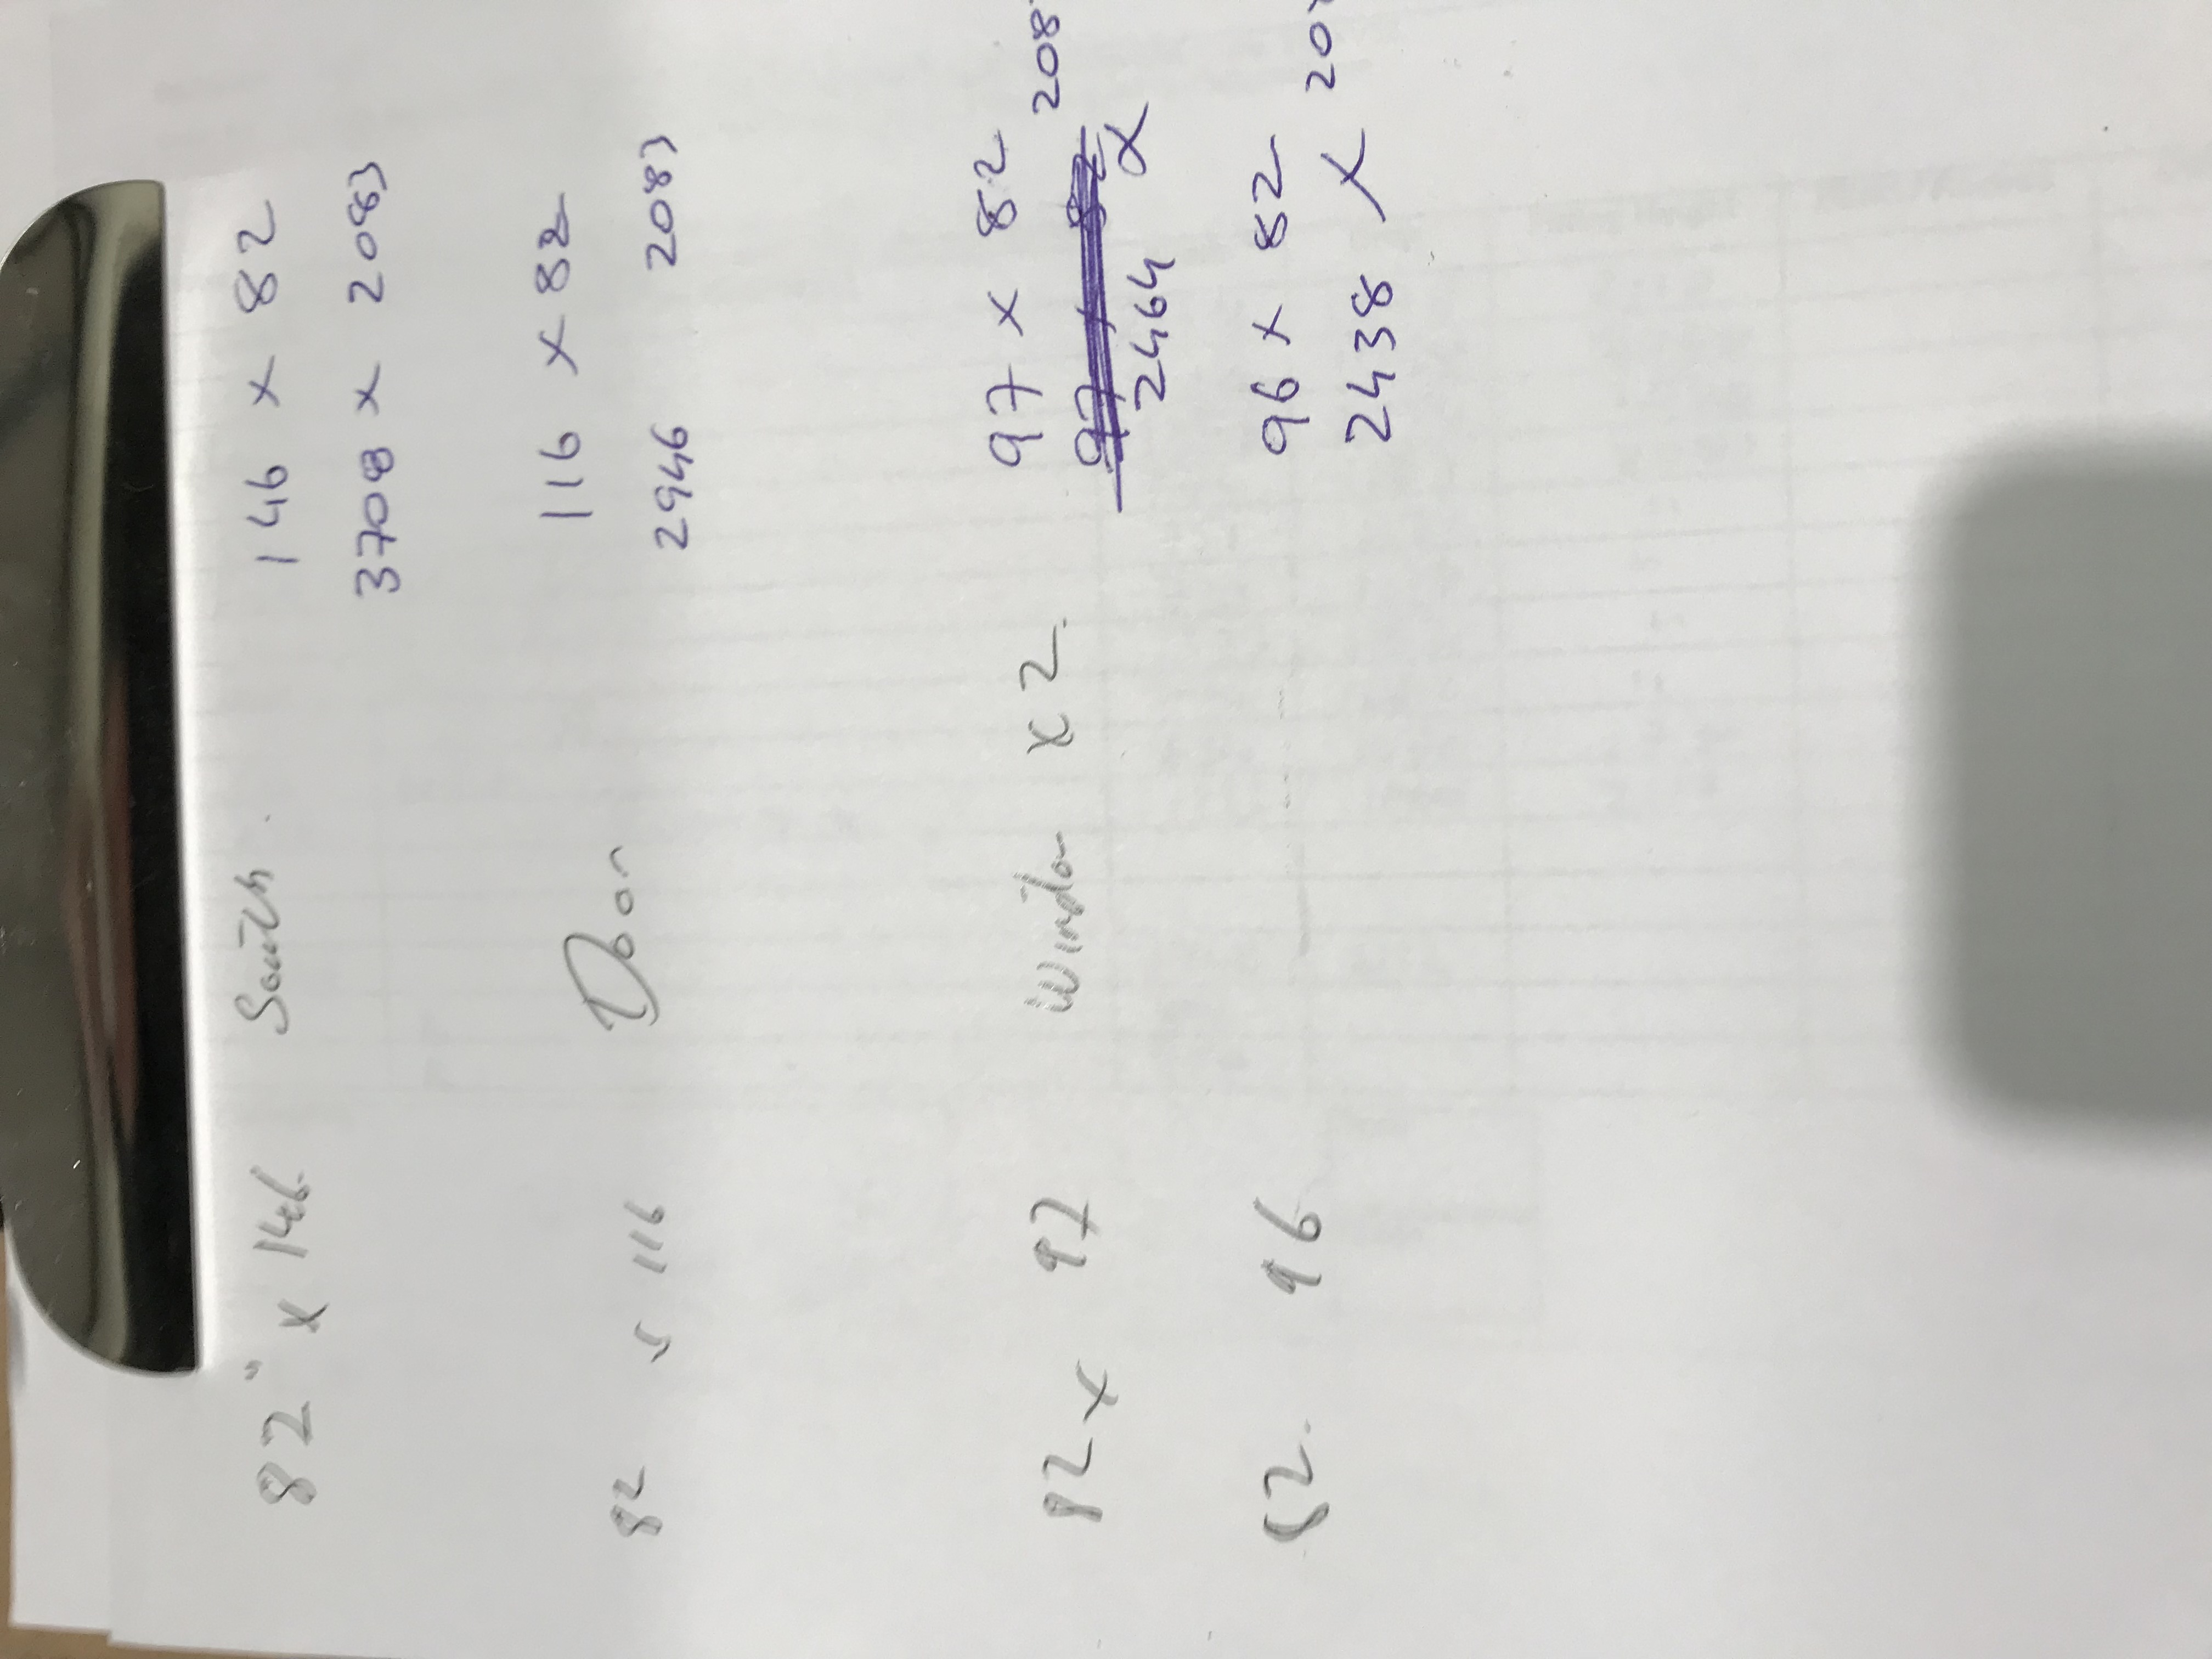 82" x 146 South 146 x 82
3708 x 2083
82 x 116 Door 116 x 82
2946 2083
82 x 97 Windo x 2 97 x 82
97 x 82
2464 x 208
82 96 96 x 82
2438 x 20